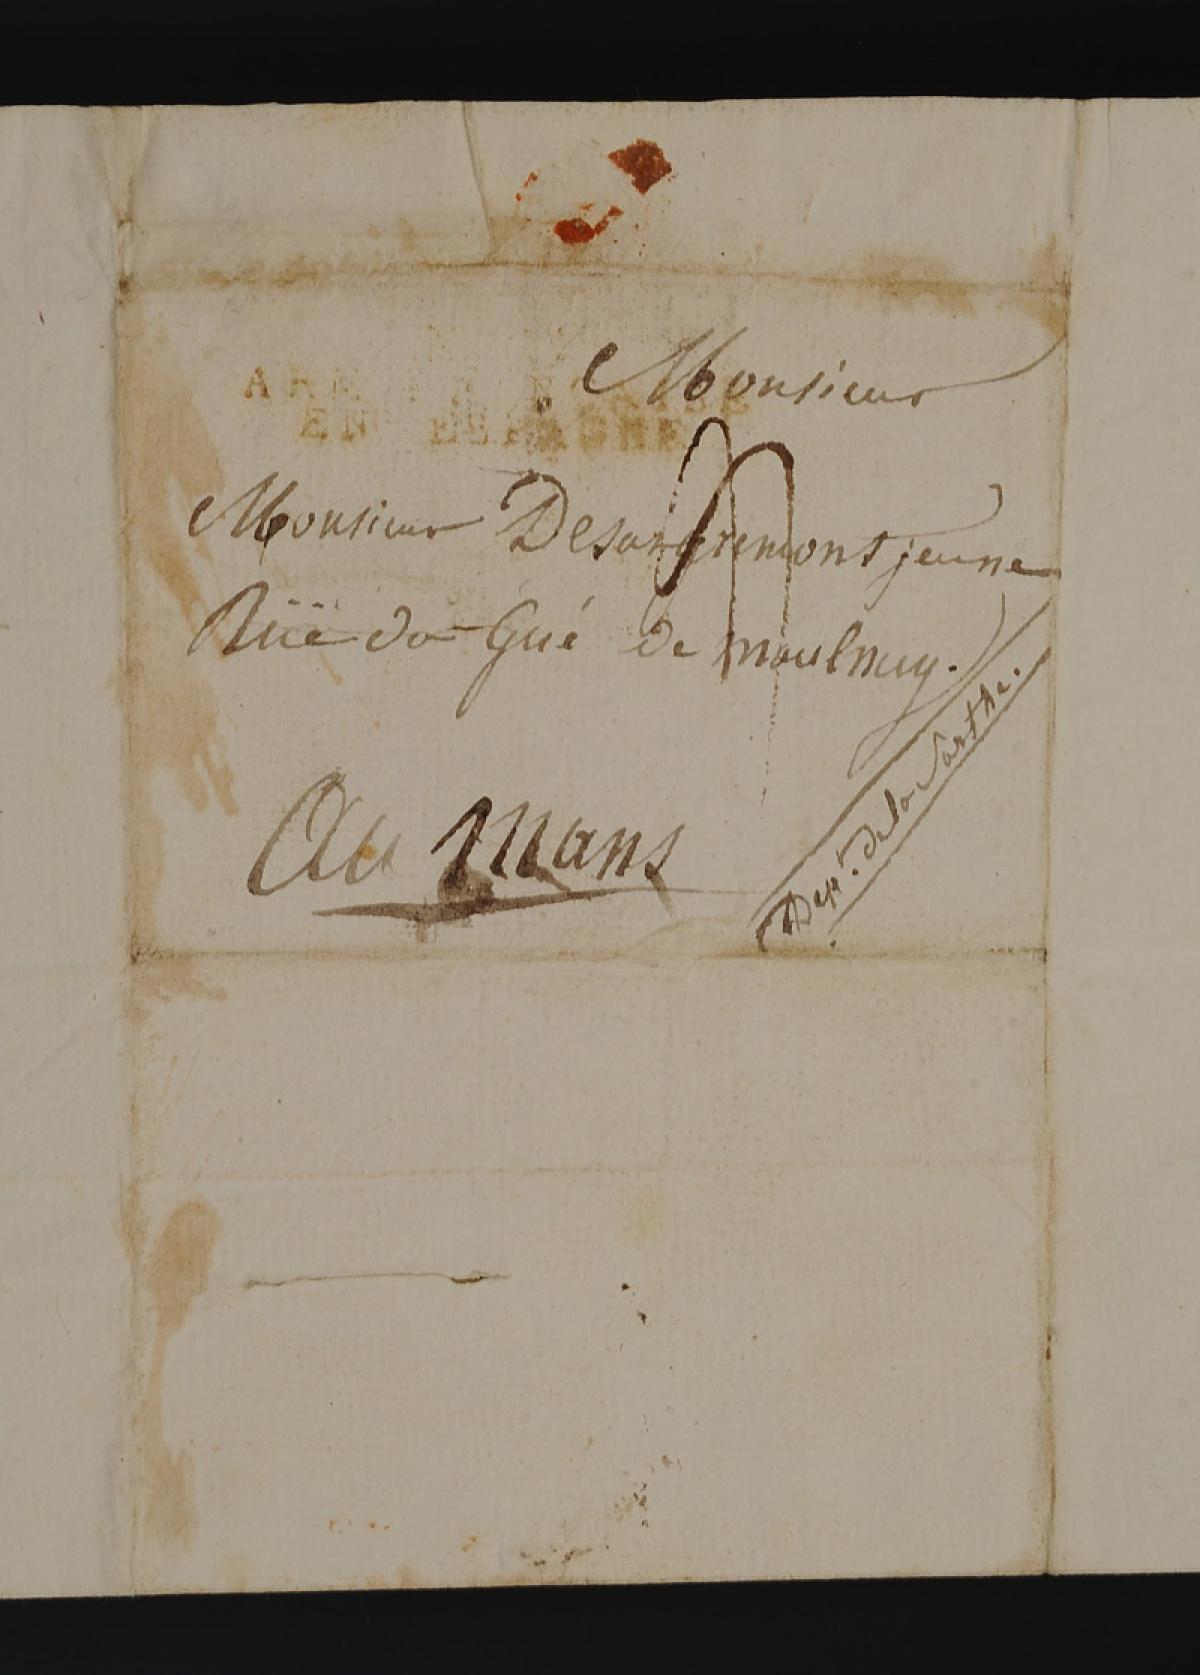 Monsieur
Monsieur Desangremont jeune
Rüe do Gué de maulny.
Au Mans
Dept. de la Sarthe.